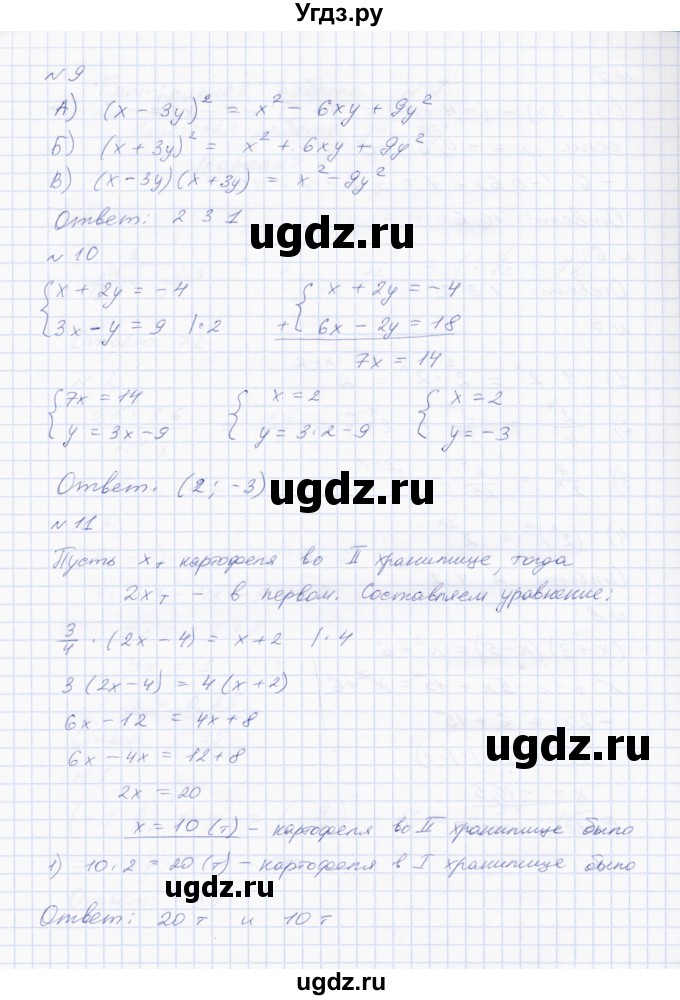 Угдз.ру
№ 9
А) (x − 3y)² = x² − 6xy + 9y²
Б) (x + 3y)² = x² + 6xy + 9y²
В) (x − 3y)(x + 3y) = x² − 9y²
Ответ: 2 3 1
ugdz.ru
№ 10
{ x + 2y = −4 { x + 2y = −4
{ 3x − y = 9 |·2 + { 6x − 2y = 18
7x = 14
{ 7x = 14 { x = 2 { x = 2
{ y = 3x − 9 { y = 3·2 − 9 { y = −3
Ответ: (2; −3)
ugdz.ru
№ 11
Пусть x т картофеля во II хранилище, тогда
2x т – в первом. Составляем уравнение:
3/4 · (2x − 4) = x + 2 |·4
3 (2x − 4) = 4 (x + 2)
6x − 12 = 4x + 8
ugdz.ru
6x − 4x = 12 + 8
2x = 20
x = 10 (т) – картофеля во II хранилище было
1) 10 · 2 = 20 (т) – картофеля в I хранилище было
ugdz.ru
Ответ: 20 т и 10 т
ugdz.ru